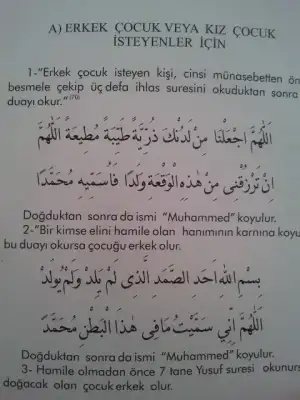 A) ERKEK ÇOCUK VEYA KIZ ÇOCUK
İSTEYENLER İÇİN
1-"Erkek çocuk isteyen kişi, cinsi münasebetten ön
besmele çekip üç defa ihlas suresini okuduktan sonra
duayı okur."(79)
اَللّٰهُمَّ اجْعَلْنَا مِنْ لَدُنْكَ ذُرِّيَّةً طَيِّبَةً مُطِيعَةً اَللّٰهُمَّ
اِنْ تَرْزُقْنِى مِنْ هٰذِهِ الْوَقْعَةِ وَلَدًا فَاُسَمِّيهِ مُحَمَّدًا
Doğduktan sonra da ismi "Muhammed" koyulur.
2-"Bir kimse elini hamile olan hanımının karnına koyu
bu duayı okursa çocuğu erkek olur.
بِسْمِ اللّٰهِ اَحَدِ الصَّمَدِ الَّذِى لَمْ يَلِدْ وَلَمْ يُولَدْ
اَللّٰهُمَّ اِنِّى سَمَّيْتُ مَافِى هٰذَا الْبَطْنِ مُحَمَّدًا
Doğduktan sonra da ismi "Muhammed" koyulur.
3- Hamile olmadan önce 7 tane Yusuf suresi okunurs
doğacak olan çocuk erkek olur.